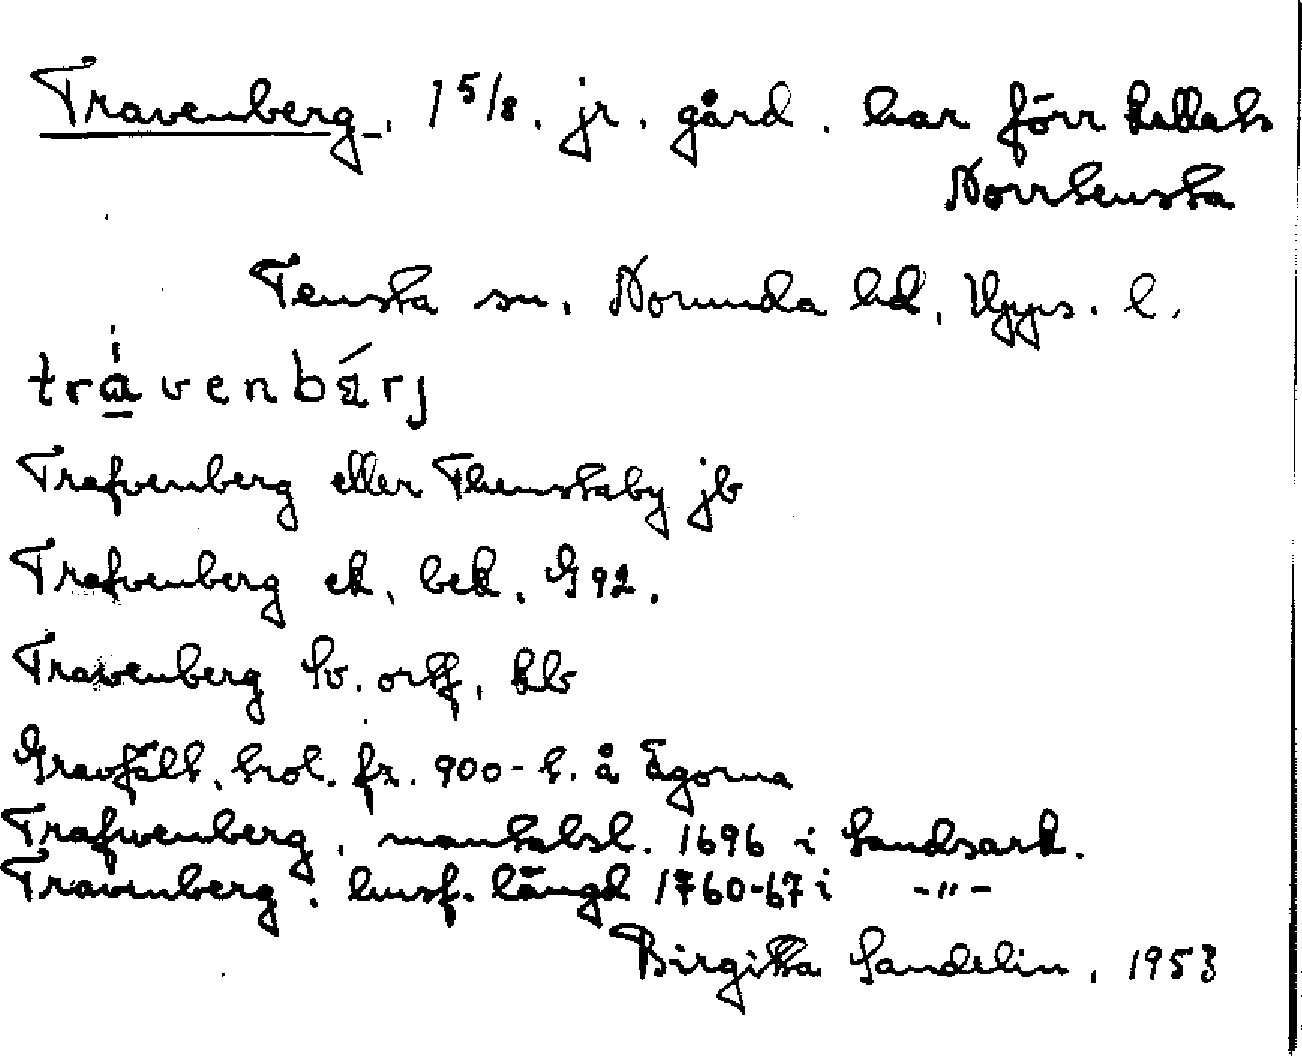 Travenberg, 1 5/8. jr. gård. har förr kallats
Norrtensta
Tensta sn, Norunda hd, Upps. l.
trávenbærj
Trafvenberg eller Thenstaby jb
Trafvenberg ek. bek. G 92.
Travenberg Sv. ortf. klb
Gravfält, trol. fr. 900-t. å ägorna
Trafwenberg, mantalsl. 1696 i landsark.
Travenberg. husf. längd 1760-67 i -"-
Birgitta Sandelin, 1953